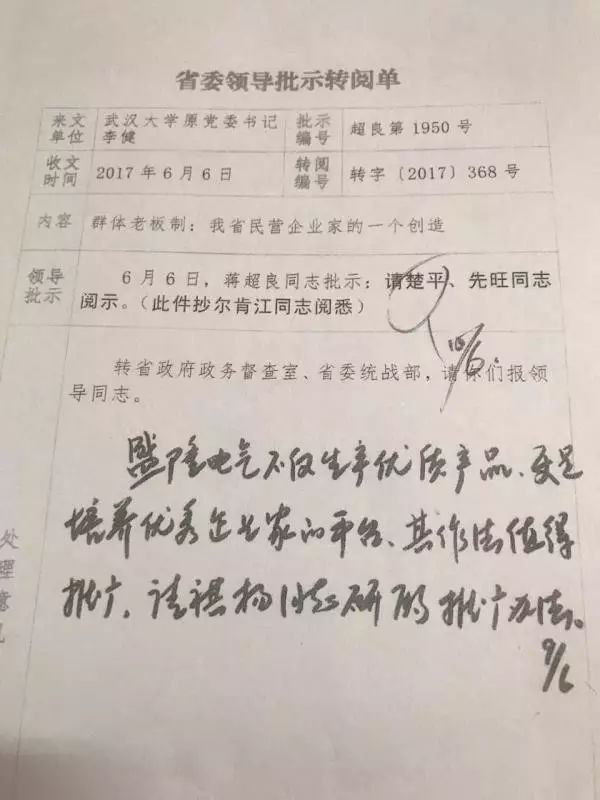 省委领导批示转阅单
来文单位 武汉大学原党委书记李健 批示编号 超良第 1950 号
收文时间 2017 年 6 月 6 日 转阅编号 转字〔2017〕368 号
内容 群体老板制：我省民营企业家的一个创造
领导批示 6 月 6 日，蒋超良同志批示：请楚平、先旺同志
阅示。（此件抄尔肯江同志阅悉）
转省政府政务督查室、省委统战部，请你们报领
导同志。
处理意见
盛隆电气不仅生产优质产品、更是
培养优秀企业家的平台、其作法值得
推广，请祺扬同志研酌推广办法。
9/6